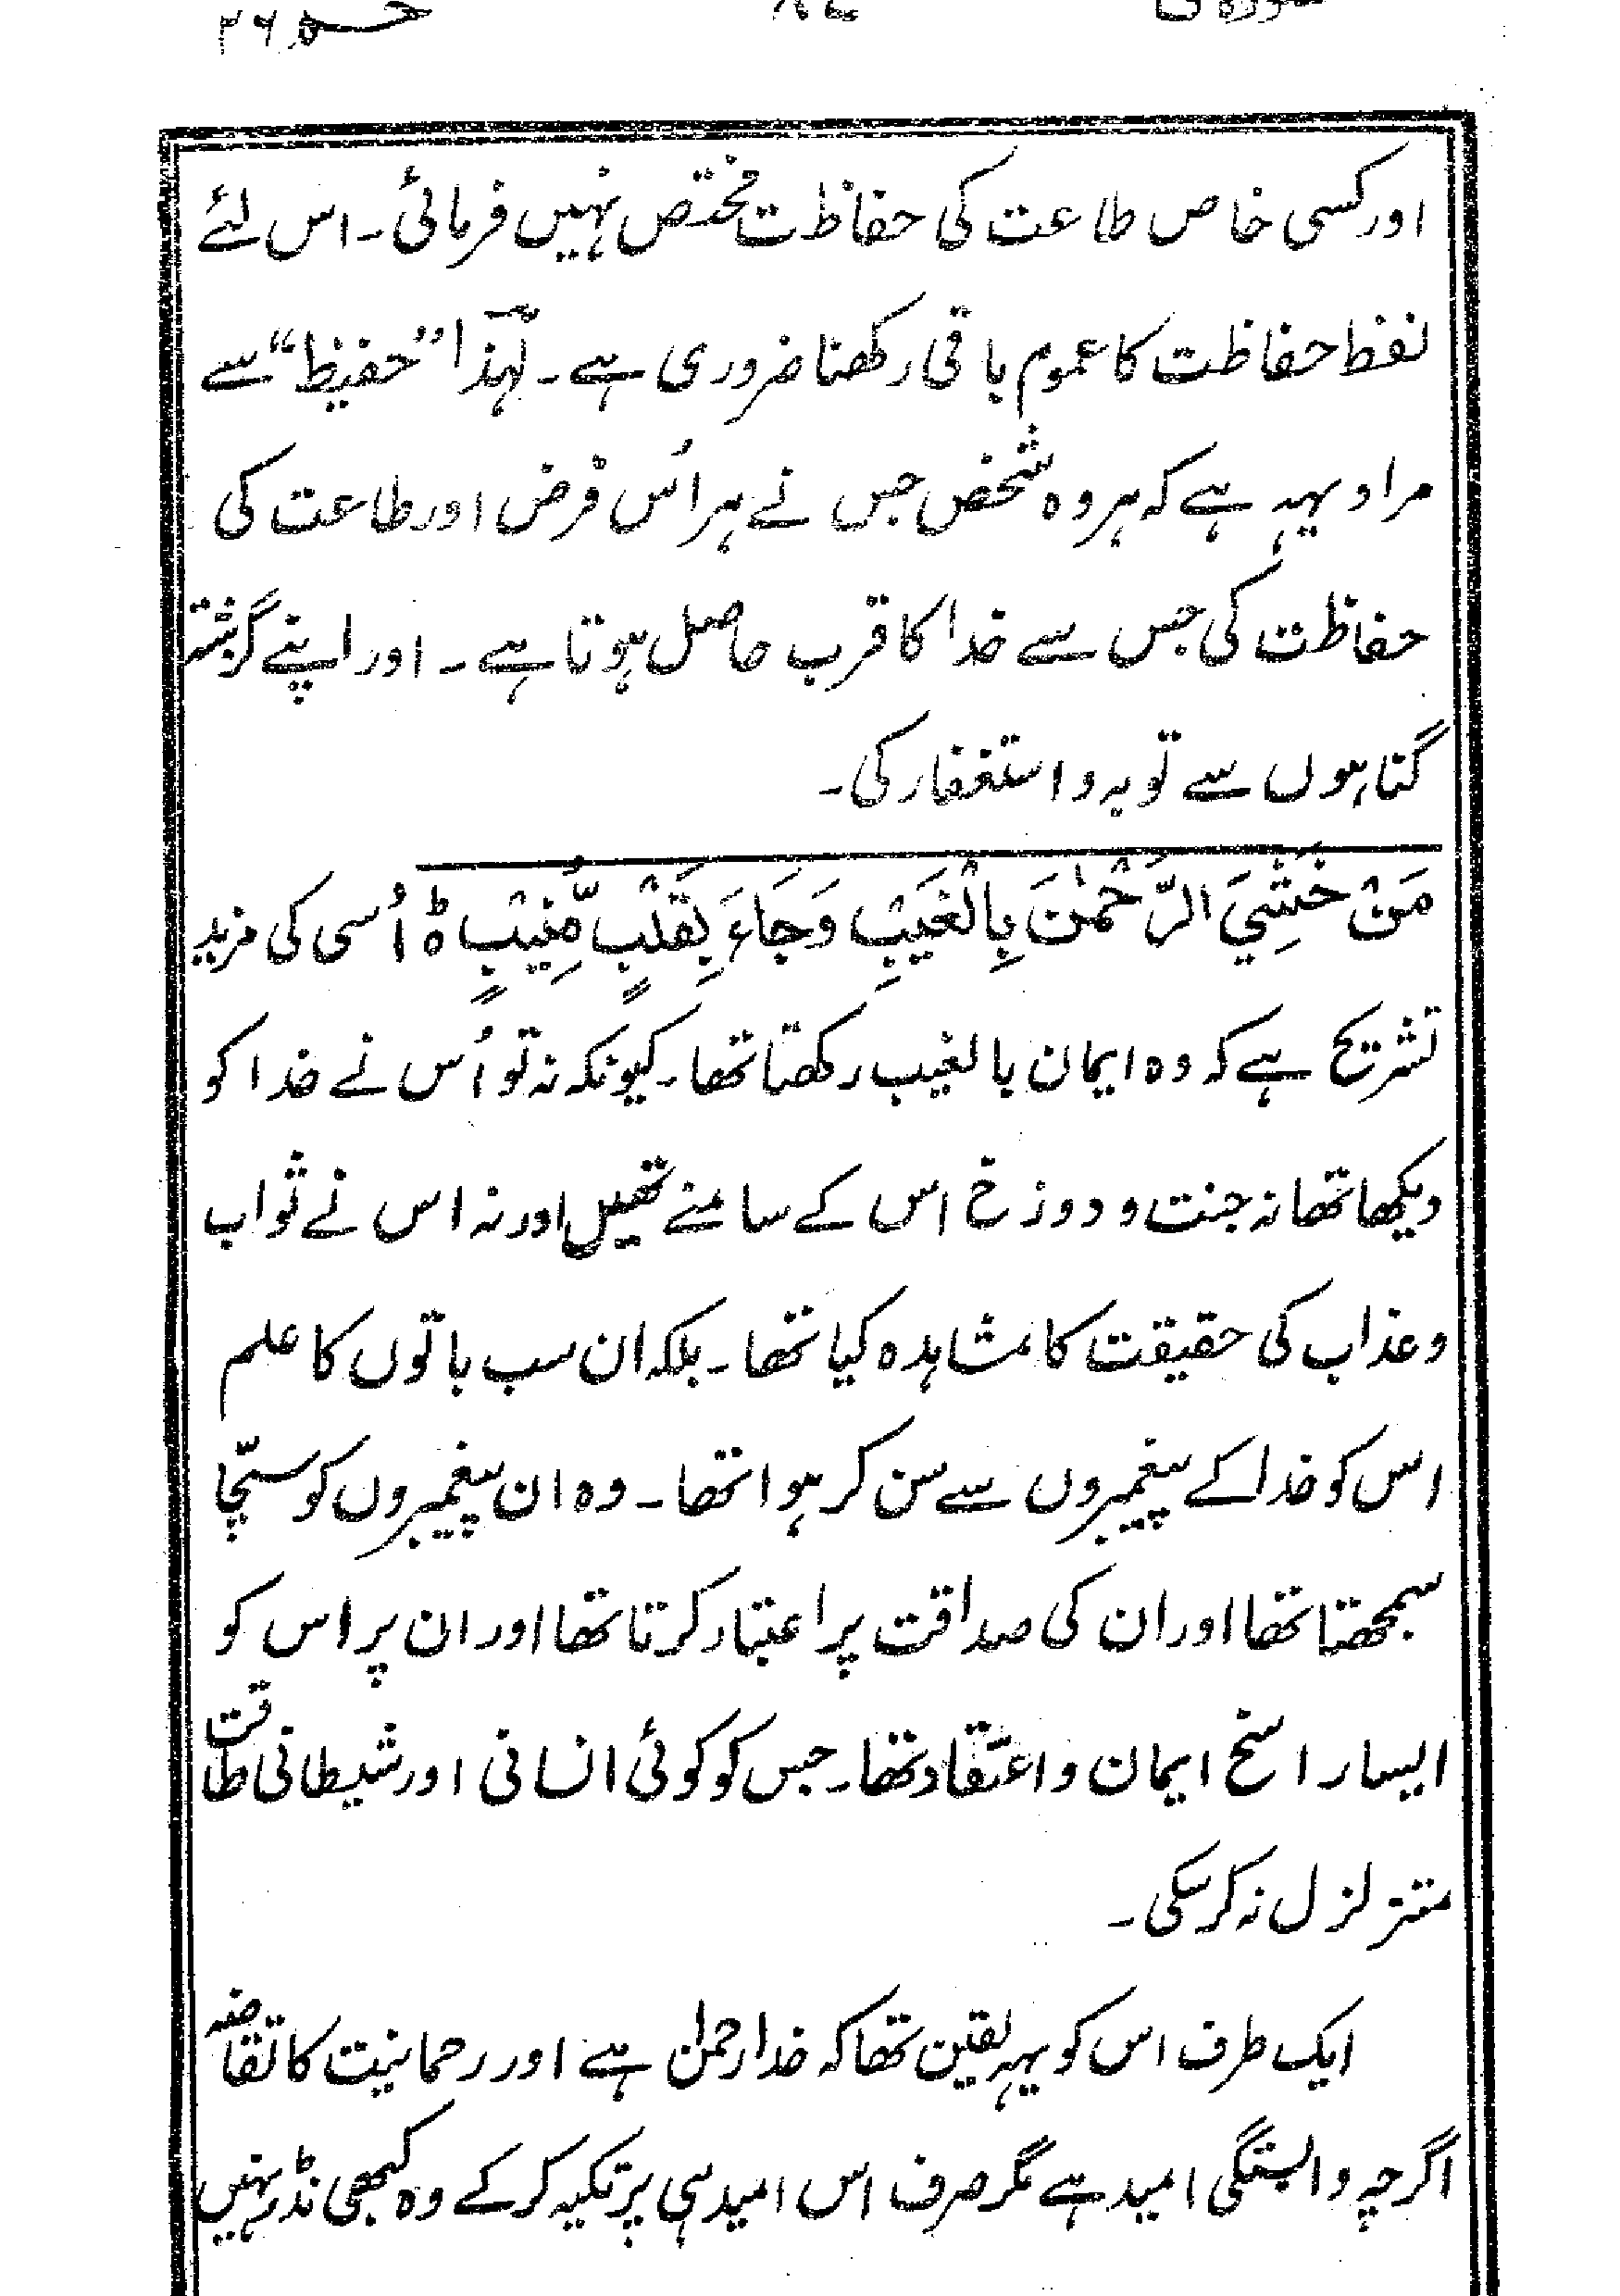 اور کسی خاص طاعت کی حفاظت مختص نہیں فرمائی۔ اس لئے
لفظ حفاظت کا عموم باقی رکھنا ضروری ہے۔ لہٰذا "حفیظ" سے
مراد یہہ ہے کہ ہر وہ شخص جس نے ہر اُس فرض اور طاعت کی
حفاظت کی جس سے خدا کا قرب حاصل ہوتا ہے۔ اور اپنے گزشتہ
گناہوں سے توبہ و استغفار کی۔
مَنْ خَشِيَ الرَّحْمٰنَ بِالْغَيْبِ وَجَاءَ بِقَلْبٍ مُّنِيْبٍ ہ اُسی کی مزید
تشریح ہے کہ وہ ایمان بالغیب رکھتا تھا۔ کیونکہ نہ تو اُس نے خدا کو
دیکھا تھا نہ جنت و دوزخ اس کے سامنے تھیں اور نہ اس نے ثواب
و عذاب کی حقیقت کا مشاہدہ کیا تھا۔ بلکہ ان سب باتوں کا علم
اس کو خدا کے پیغمبروں سے سن کر ہوا تھا۔ وہ ان پیغمبروں کو سچّا
سمجھتا تھا اور ان کی صداقت پر اعتبار کرتا تھا اور ان پر اس کو
ایسا راسخ ایمان و اعتقاد تھا۔ جس کو کوئی انسانی اور شیطانی طاقت
متزلزل نہ کر سکی۔
ایک طرف اس کو یہہ یقین تھا کہ خدا رحمٰن ہے اور رحمانیت کا تقاضہ
اگرچہ وابستگی امید ہے مگر صرف اس امید ہی پر تکیہ کر کے وہ کبھی نڈر نہیں